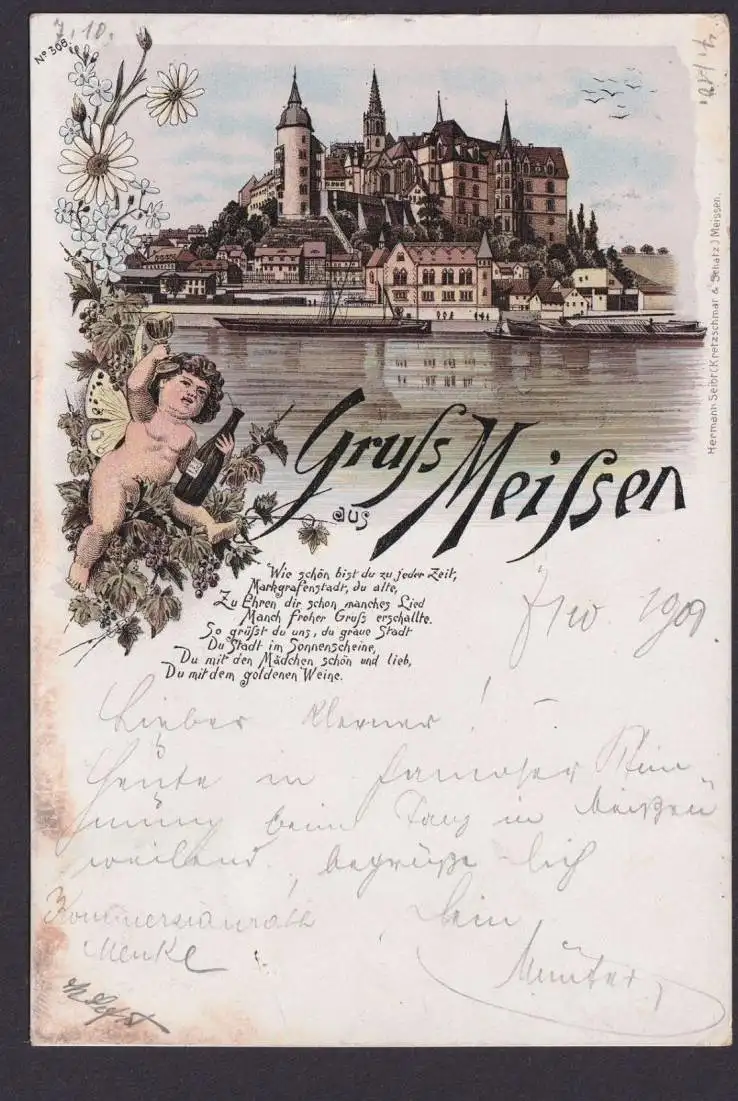 7.10.
No 308.
Hermann Seibt (Kretzschmar & Schatz) Meissen.
Gruſs
aus
Meiſsen
Wie schön bist du zu jeder Zeit,
Markgrafenstadt, du alte,
Zu Ehren dir schon manches Lied
Manch froher Gruſs erschallte.
So grüßt du uns, du graue Stadt
Du Stadt im Sonnenscheine,
Du mit den Mädchen schön und lieb,
Du mit dem goldenen Weine.
Lieber !
Heute in famoser Stim-
mung beim Tanz in Meißen
weilend, begrüßt Dich
Kommerzienrath
Menke
Dein
Münter